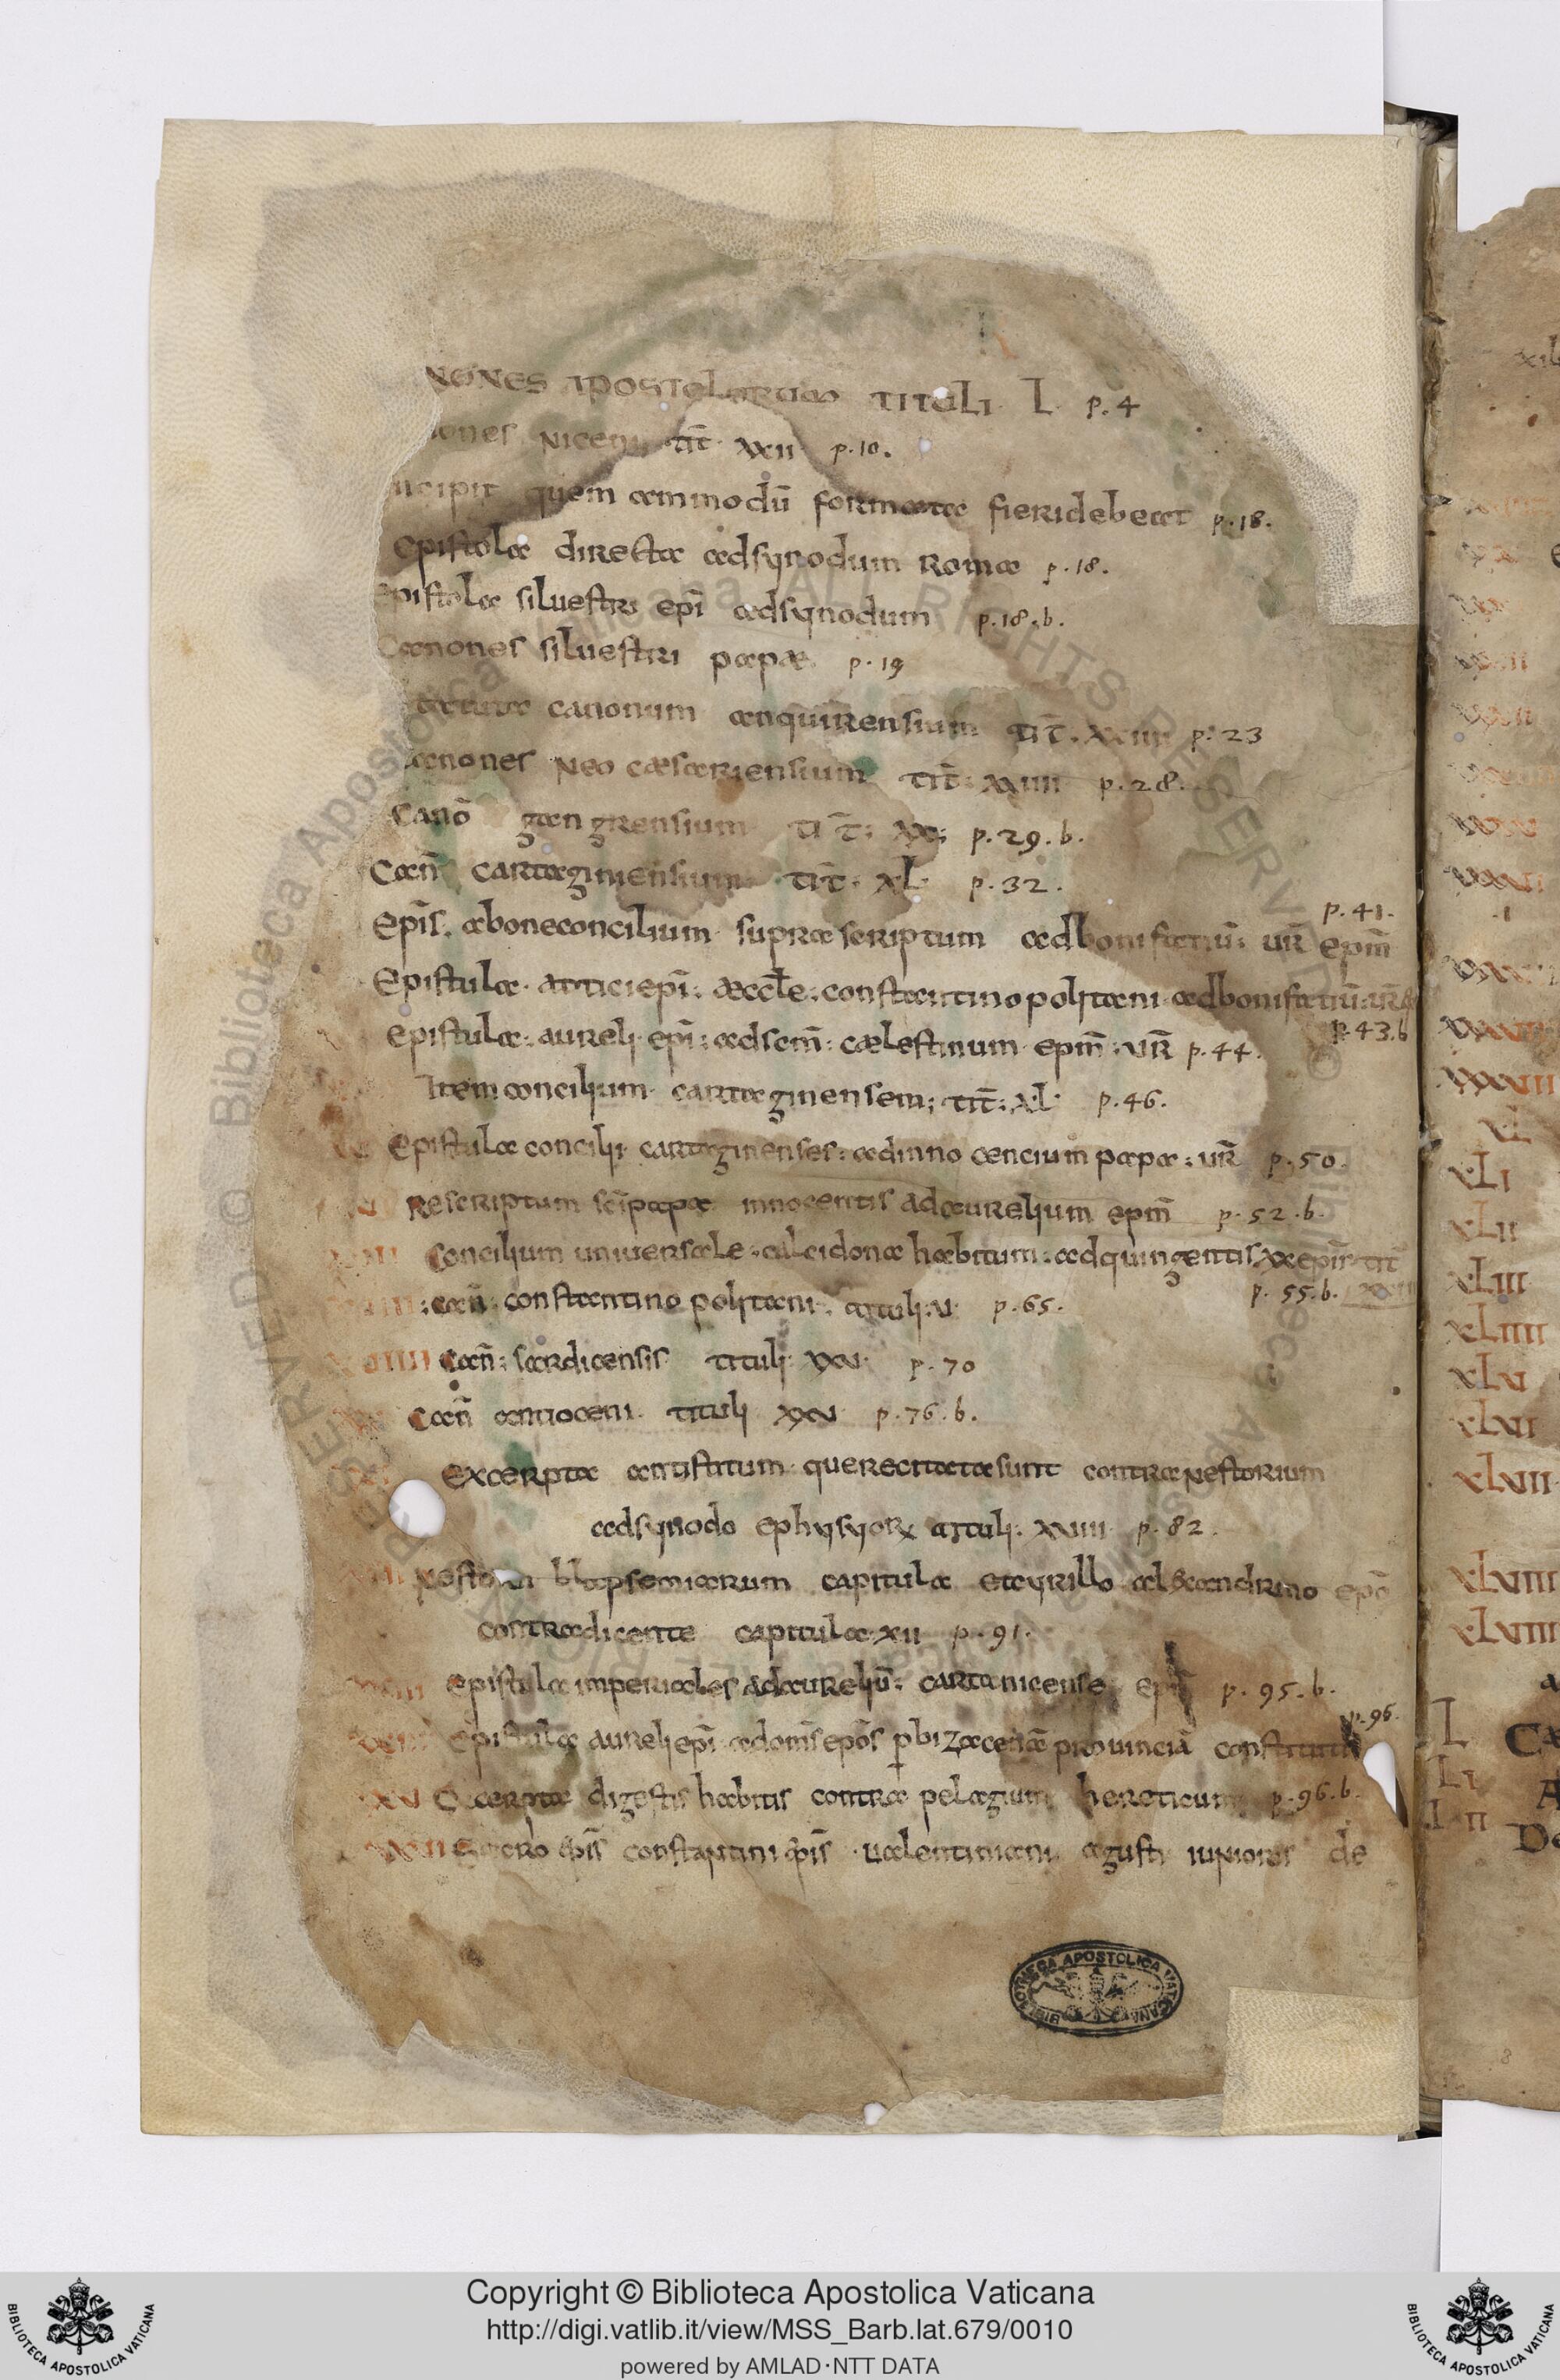 NONES APOSTOLORUM TITULI L p. 4
ones niceni tit̄ xxii p. 10.
ncipit quem ammodū formata fieri debeat p. 18.
Epistola directa ad synodum Roma p. 18.
Epistola siluestri ep̄i ad synodum p. 18. b.
Canones siluestri papae p. 19
canonum anquirensium tit̄. xxiiii p. 23
anones neo caesariensium tit̄: xiiii p. 28.
Canō gangrensium tit̄: xx; p. 29. b.
Can̄ cartaginiensium tit̄: xl p. 32.
p. 41.
Ep̄is. abone concilium suprascriptum ad bonifatiū: ur̄ ep̄m
Epistula. attici ep̄i: aeccl̄e: constantinopolitani ad bonifatiū: ur̄
epistula: aureli ep̄i: ad sc̄m: caelestinum ep̄m: ur̄ p. 44. p. 43. b
Item concilium cartaginensem; tit̄: xl p. 46.
Epistula concilii cartaginenses: ad inno cencium papa: ur̄ p. 50.
Rescriptum sc̄i papae innocentis ad aurelium ep̄m p. 52. b.
Concilium uniuersale calcidona habitum: ad quingentis xx ep̄is tit̄
can̄: constantinopolitani: tituli: u p. 65. p. 55. b.
xuiiii Can̄: sardicensis tituli xxi p. 70
Can̄ antioceni. tituli xxu p. 76. b.
Excerpta antistitum que recitata sunt contra nestorium
ad synodo ephysiorꝝ tituli: xxiiii p. 82.
nestorii blapsemiarum capitula et cyrillo alexandrino ep̄o
contradicente capitula xii p. 91.
epistula imperiales ad aureliū: cartanicense ep̄m p. 95. b.
p. 96.
Epistula aureli ep̄i ad om̄s ep̄os p̱ bizacenā prouinciā constituti
xxu Excerpta digestis habitis contra pelagium hereticum p. 96. b.
constantini ualentiniani agusti iunioris de
BIBLIOTHECA APOSTOLICA VATICANA
xl
xli
xlii
xliii
xliiii
xlu
xlui
xluii
xluiii
xluiiii
L
Li
Lii
Copyright © Biblioteca Apostolica Vaticana
http://digi.vatlib.it/view/MSS_Barb.lat.679/0010
powered by AMLAD·NTT DATA
BIBLIOTECA APOSTOLICA VATICANA
BIBLIOTECA APOSTOLICA VATICANA